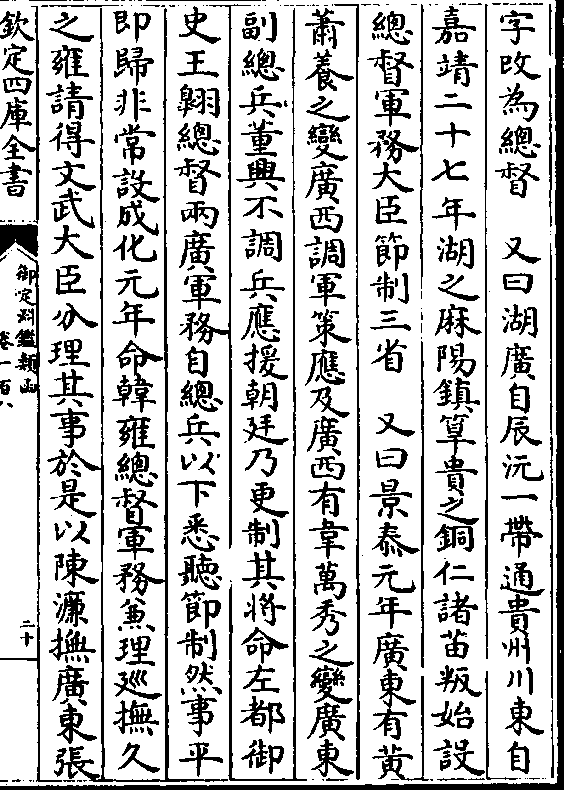 字改為總督　又曰湖廣自辰沅一帶通貴州川東自
嘉靖二十七年湖之麻陽鎮筸貴之銅仁諸苗叛始設
總督軍務大臣節制三省　又曰景泰元年廣東有黃
蕭養之變廣西調軍策應及廣西有韋萬秀之變廣東
副總兵董興不調兵應援朝廷乃更制其將命左都御
史王翺總督兩廣軍務自總兵以下悉聽節制然事平
即歸非常設成化元年命韓雍總督軍務兼理廵撫久
之雍請得文武大臣分理其事於是以陳濂撫廣東張
欽定四庫全書
御定淵鑑類函
卷一百八
二十